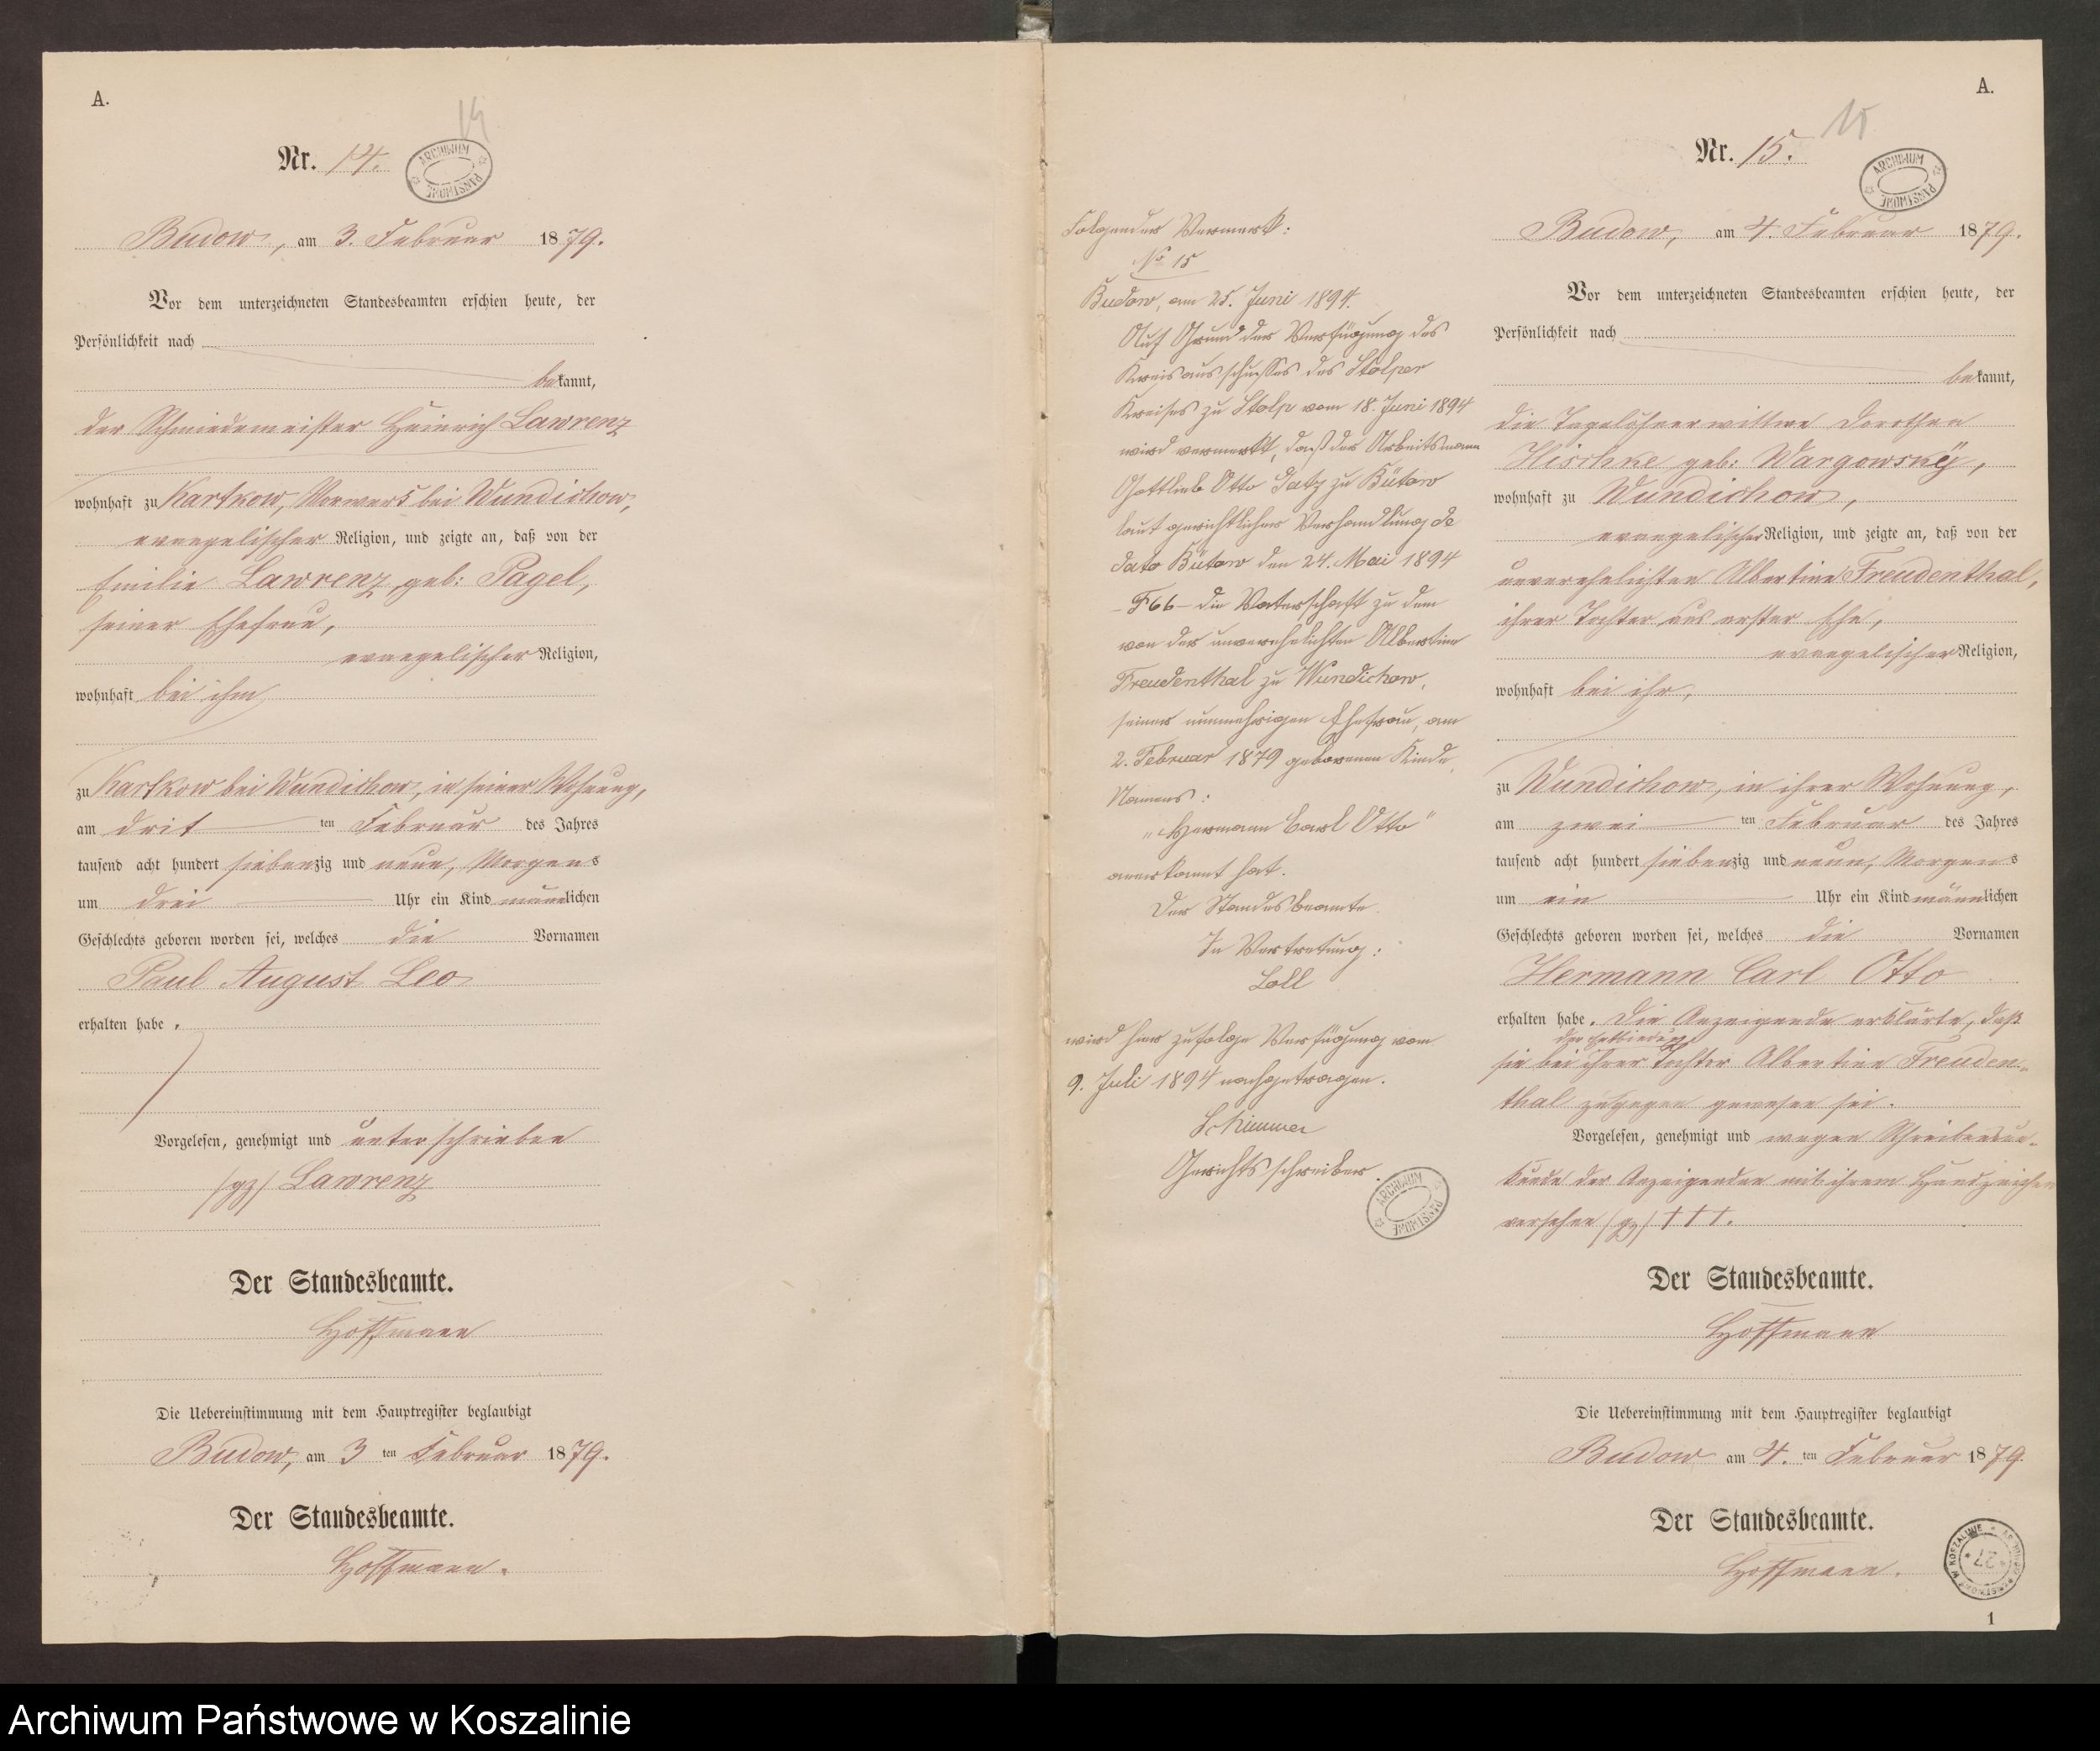 A.
14
Nr. 14.
ARCHIWUM PAŃSTWOWE
Budow, am 3. Februar 1879.
Vor dem unterzeichneten Standesbeamten erschien heute, der
Persönlichkeit nach
bekannt,
der Schmiedemeister Heinrich Lawrenz
wohnhaft zu Kartkow, Vorwerk bei Wundichow,
evangelischer Religion, und zeigte an, daß von der
Emilie Lawrenz, geb: Pagel,
seiner Ehefrau,
evangelischer Religion,
wohnhaft bei ihm
zu Kartkow bei Wundichow, in seiner Wohnung,
am drit ten Februar des Jahres
tausend acht hundert siebenzig und neun, Morgens
um drei Uhr ein Kind männlichen
Geschlechts geboren worden sei, welches die Vornamen
Paul August Leo
erhalten habe.
Vorgelesen, genehmigt und unterschrieben
/gz/ Lawrenz
Der Standesbeamte.
Hoffmann
Die Uebereinstimmung mit dem Hauptregister beglaubigt
Budow, am 3 ten Februar 1879.
Der Standesbeamte.
Hoffmann.
Folgender Vermerk:
No 15
Budow, am 25. Juni 1894.
Auf Grund der Verfügung des
Kreisausschusses des Stolper
Kreises zu Stolp vom 18. Juni 1894
wird vermerkt, daß der Arbeitsmann
Gottlieb Otto Datz zu Bütow
laut gerichtlicher Verhandlung de
dato Bütow den 24. Mai 1894
- F 66 - die Vaterschaft zu dem
von der unverehelichten Albertine
Freudenthal zu Wundichow,
seiner nunmehrigen Ehefrau, am
2. Februar 1879 geborenen Kinde,
Namens:
"Hermann Carl Otto"
anerkannt hat.
Der Standesbeamte.
In Vertretung:
Loll
wird hier zufolge Verfügung vom
9. Juli 1894 nachgetragen.
Schimmer
Gerichtsschreiber.
ARCHIWUM PAŃSTWOWE
A.
15
Nr. 15.
ARCHIWUM PAŃSTWOWE
Budow, am 4. Februar 1879.
Vor dem unterzeichneten Standesbeamten erschien heute, der
Persönlichkeit nach
bekannt,
die Tagelöhnerwittwe Dorothea
Hischke geb: Wargowsky,
wohnhaft zu Wundichow,
evangelischer Religion, und zeigte an, daß von der
unverehelichten Albertine Freudenthal,
ihrer Tochter aus erster Ehe,
evangelischer Religion,
wohnhaft bei ihr,
zu Wundichow, in ihrer Wohnung,
am zwei ten Februar des Jahres
tausend acht hundert siebenzig und neun, Morgens
um ein Uhr ein Kind männlichen
Geschlechts geboren worden sei, welches die Vornamen
Hermann Carl Otto
erhalten habe. Die Anzeigende erklärte, daß
der Entbindung
sie bei ihrer Tochter Albertine Freuden-
thal zugegen gewesen sei.
Vorgelesen, genehmigt und wegen Schreibensun-
kunde der Anzeigenden mit ihrem Handzeichen
versehen /gz/ † † †.
Der Standesbeamte.
Hoffmann
Die Uebereinstimmung mit dem Hauptregister beglaubigt
Budow am 4. ten Februar 1879.
Der Standesbeamte.
Hoffmann.
ARCHIWUM PAŃSTWOWE W KOSZALINIE
27
1
Archiwum Państwowe w Koszalinie